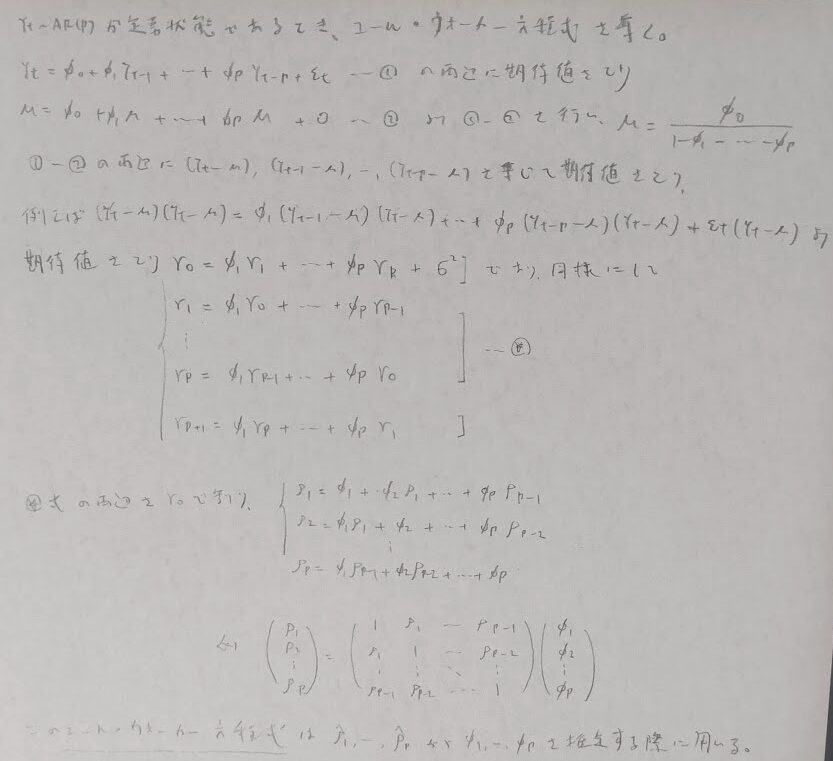 Yt~AR(P) が定常状態であるとき、ユール・ウォーカー方程式を導く。
Yt = φ0 + φ1 Yt-1 + … + φp Yt-p + εt … ① の両辺に期待値をとり
μ = φ0 + φ1 μ + … + φp μ + 0 … ② より ①-② を行い、 μ = φ0 / (1-φ1 - … -φp)
①-② の両辺に (Yt-μ), (Yt-1-μ), …, (Yt-p-μ) を乗じて期待値をとり、
例えば (Yt-μ)(Yt-μ) = φ1 (Yt-1-μ)(Yt-μ) + … + φp (Yt-p-μ)(Yt-μ) + εt (Yt-μ) より
期待値をとり γ0 = φ1 γ1 + … + φp γp + σ²] であり、同様にして
γ1 = φ1 γ0 + … + φp γp-1
⋮
… ㊍
γp = φ1 γp-1 + … + φp γ0
γp+1 = φ1 γp + … + φp γ1 ]
式の両辺を γ0 で割り、 ρ1 = φ1 + φ2 ρ1 + … + φp ρp-1
ρ2 = φ1 ρ1 + φ2 + … + φp ρp-2
⋮
ρp = φ1 ρp-1 + φ2 ρp-2 + … + φp
より (ρ1 ρ2 ⋮ ρp) = (1 ρ1 … ρp-1
ρ1 1 … ρp-2
⋮ ⋮ ⋱ ⋮
ρp-1 ρp-2 … 1) (φ1 φ2 ⋮ φp)
このユール・ウォーカー方程式は ρ̂1, …, ρ̂p から φ1, …, φp を推定する際に用いる。